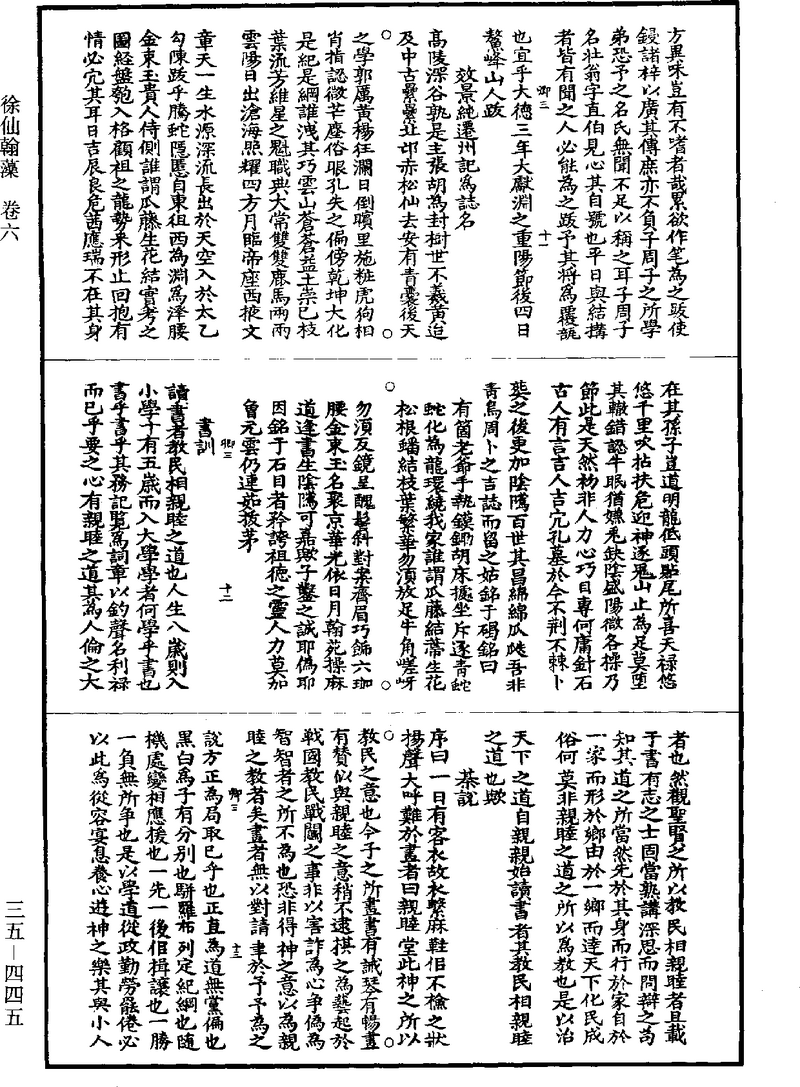 徐仙翰藻　卷六
三五－四四五
方異味豈有不嗜者哉累欲作筆為之跋使
鋟諸梓以廣其傳庶亦不負子周子之所學
弟恐予之名氏無聞不足以稱之耳子周子
名壯翁字直伯見心其自號也平日與結搆
者皆有聞之人必能為之跋予其將為覆瓿
也宜乎大德三年大獻淵之重陽節後四日
鰲峰山人跋
卿三
十一
效景純遷州記為誌名
高陵深谷孰是主張胡為封樹世不羲黃迨
及中古纍纍北邙赤松仙去安有青囊後天
之學郭厲黃楊狂瀾日倒曠里施粧虎狗相
肖指認微芒塵俗眼孔失之偏傍乾坤大化
是紀是綱誰洩其巧雲山蒼蒼盍土崇已枝
葉流芳維星之魁職典大常雙雙鹿馬兩兩
雲陽日出滄海照耀四方月臨帝座西掖文
章天一生水源深流長出於天空入於太乙
勾陳跋乎騰蛇隱慝自東徂西為淵為澤腰
金束玉貴人侍側誰謂瓜藤生花結實考之
圖經盤匏入格顧祖之龍勢來形止回抱有
情必宂其耳日吉辰良危茜應瑞不在其身
在其孫子豈道明龍低頭點尾所喜天祿悠
悠千里吹拈扶危迎神逐鬼山止為足莫墮
其轍錯認牛眠猶嫌兎缺陰盛陽微各操乃
節此是天然物非人力心巧目專何庸針石
古人有言吉人吉宂孔墓於今不荆不棘卜
葬之後更加陰隲百世其昌綿綿瓜瓞吾非
青烏周卜之吉誌而留之姑銘于碣銘曰
有箇老爺手執鏌鋤胡床據坐斥逐青蛇
蛇化為龍環繞我家誰謂瓜藤結蒂生花
松根蟠結枝葉繁華勿湏放足牛角嗟呀
勿湏反鏡呈醜髻斜對案齊眉巧飾六珈
腰金束玉名聚京華光依日月翰苑操麻
道逢書生陰隲可嘉歟子鑿之誠耶偽耶
因銘于石目者矜誇祖德之靈人力莫加
曾元雲仍連茹拔茅
卿三
十二
書訓
讀書者教民相親睦之道也人生八歲則入
小學子有五歲而入大學學者何學乎書也
書乎書乎其務記覽為詞章以釣聲名利祿
而已乎要之心有親睦之道其為人倫之大
者也然觀聖賢之所以教民相親睦者且載
于書有志之士固當孰講深思而問辯之苟
知其道之所當然先於其身而行於家自於
一家而形於鄉由於一鄉而達天下化民成
俗何莫非親睦之道之所以為教也是以治
天下之道自親親始讀書者其教民相親睦
之道也歟
棊說
序曰一日有客衣故衣繫麻鞋佀不檢之狀
揚聲大呼難於畫者曰親睦堂此神之所以
教民之意也今子之所畫書有誡琴有暢畫
有贊似與親睦之意稍不逮棋之為藝起於
戰國教民戰鬬之事非以害詐為心爭偽為
智智者之所不為也恐非得神之意以為親
睦之教者矣畫者無以對請聿於予予為之
卿三
十三
說方正為局取巳乎也正直為道無黨偏也
黑白為子有分別也駢羅布列定紀綱也隨
機處變相應援也一先一後佀揖讓也一勝
一負無所爭也是以學道從政勤勞罷倦必
以此為從容宴息養心遊神之樂其與小人